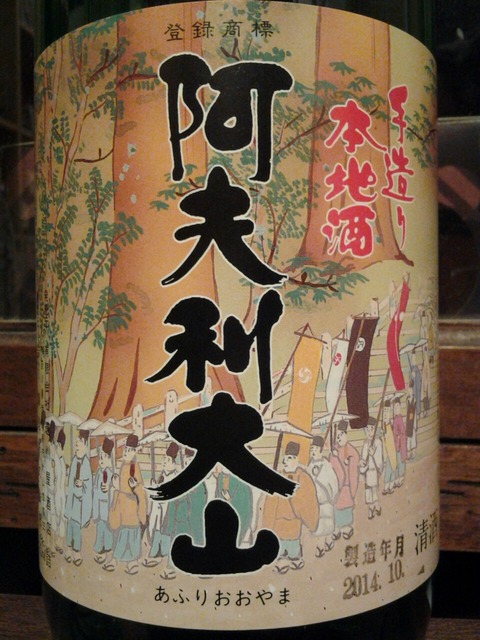 登録商標
手造り
本地酒
阿夫利大山
あふりおおやま
清酒
製造年月
2014.10.